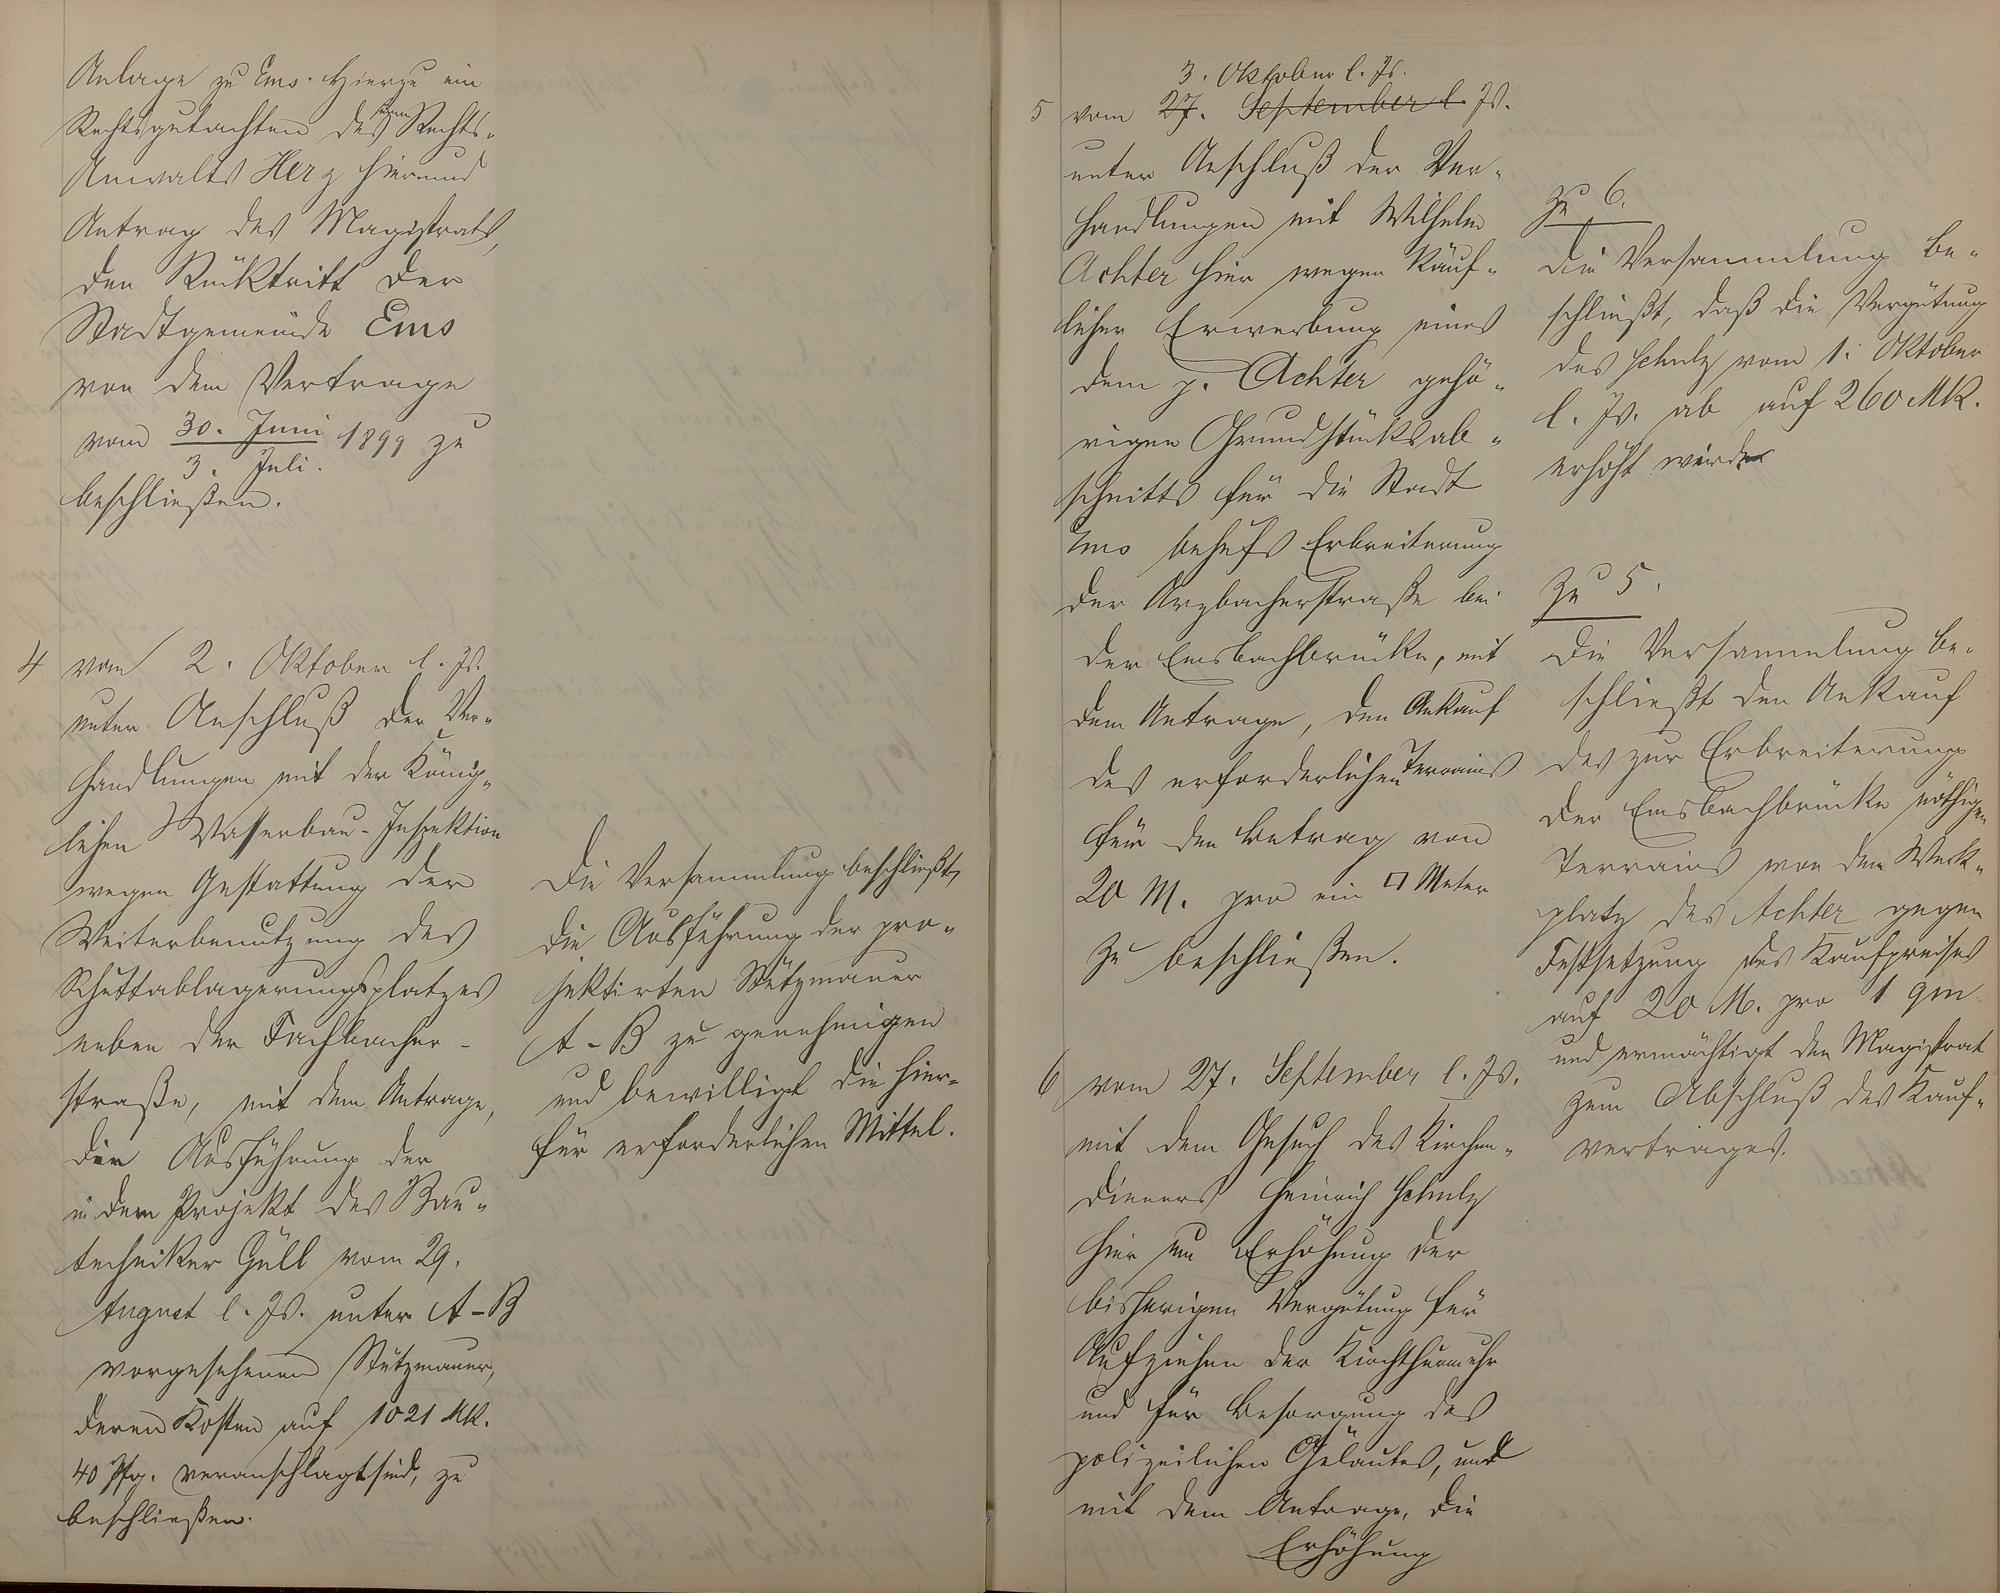 Anlage zu Ems. Hierzu ein
Rechtsgutachten des Herrn Rechts-
Anwalts Herz hier und
Antrag des Magistrats,
den Rücktritt der
Stadtgemeinde Ems
von dem Vertrage
vom 30. Juni 1899 zu
3. Juli.
beschließen.
4 vom 2. Oktober l. Js.
unter Anschluß der Ver-
handlungen mit der König-
lichen Wasserbau-Inspektion
wegen Gestattung der
Weiterbenutzung des
Schuttablagerungsplatzes
neben der Fachbacher-
straße, mit dem Antrage,
die Ausführung der
in dem Projekt des Bau-
techniker Güll vom 29.
August l. Js. unter A-B
vorgesehenen Stützmauer,
deren Kosten auf 1021 Mk.
40 Pfg. veranschlagt sind, zu
beschließen.
Die Versammlung beschließt,
die Ausführung der pro-
jektirten Stützmauer
A-B zu genehmigen
und bewilligt die hier-
für erforderlichen Mittel.
3. Oktober l. Js.
5 vom 27. September l. Js.
unter Anschluß der Ver-
handlungen mit Wilhelm
Achter hier wegen käuf-
licher Erwerbung eines
dem p. Achter gehö-
rigen Grundstücksab-
schnitts für die Stadt
Ems behufs Erbreiterung
der Arzbacherstraße bei
der Emsbachbrücke, mit
dem Antrage, den Ankauf
des erforderlichen Terrains
für den Betrag von
20 M. pro ein □ Meter
zu beschließen.
6 vom 27. September l. Js.
mit dem Gesuch des Kirchen-
dieners Heinrich Schulz
hier um Erhöhung der
bisherigen Vergütung für
Aufziehen der Kirchthurmuhr
und für Besorgung des
polizeilichen Geläutes, und
mit dem Antrage, die
Erhöhung
Zu 6.
Die Versammlung be-
schließt, daß die Vergütung
des Schulz vom 1. Oktober
l. Js. ab auf 260 Mk.
erhöht werde
Zu 5.
Die Versammlung be-
schließt den Ankauf
des zur Erbreiterung
der Emsbachbrücke nöthigen
Terrains von dem Werk-
platz des Achter gegen
Festsetzung des Kaufpreises
auf 20 M. pro 1 qm
und ermächtigt den Magistrat
zum Abschluß des Kauf-
vertrages.